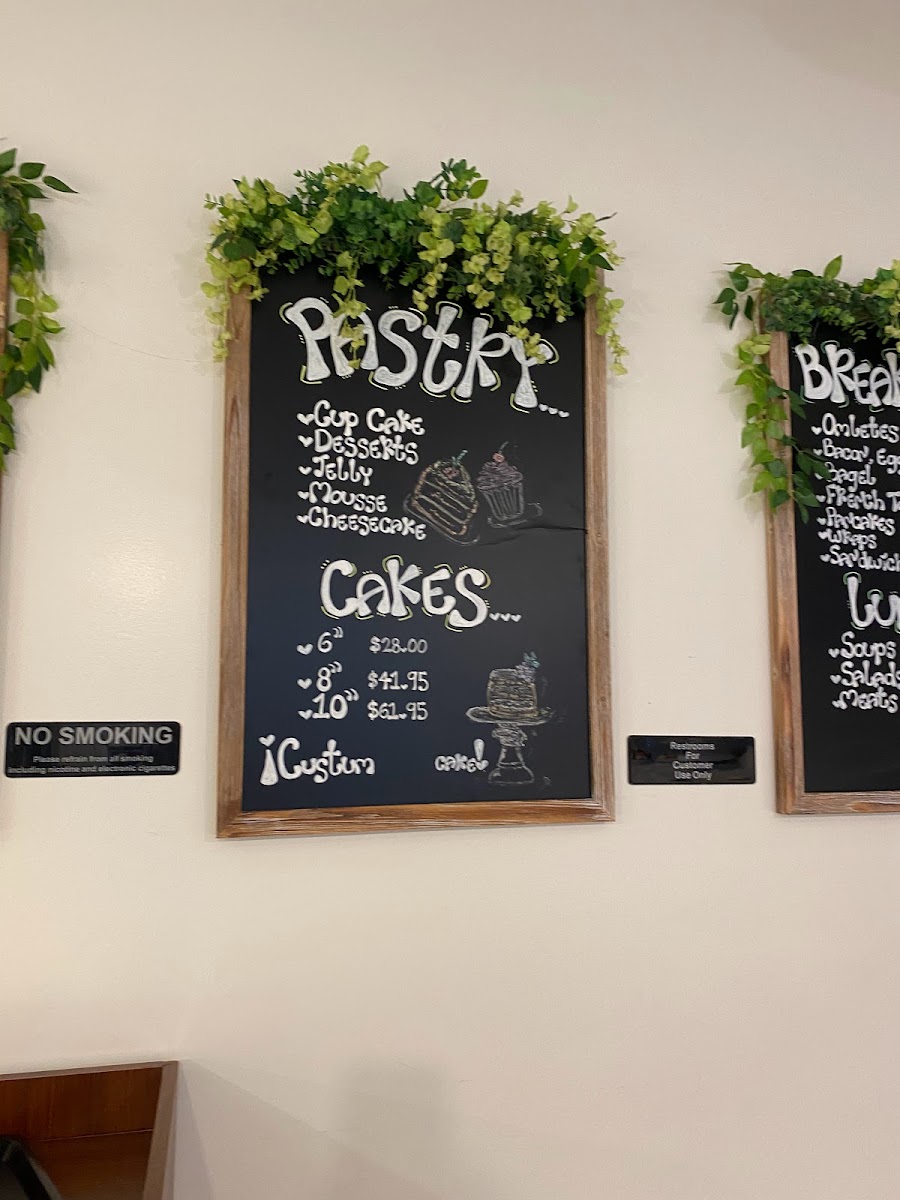 PASTRY...
CUP CAKE
DESSERTS
JELLY
MOUSSE
CHEESECAKE
CAKES...
6" $28.00
8" $41.95
10" $61.95
¡Custum cake!
NO SMOKING
Please refrain from all smoking
including nicotine and electronic cigarettes
Restrooms
For
Customer
Use Only
OMLETES
BACON,
BAGEL
FRENCH
PANCAKES
WRAPS
SOUPS
SALADS
MEATS